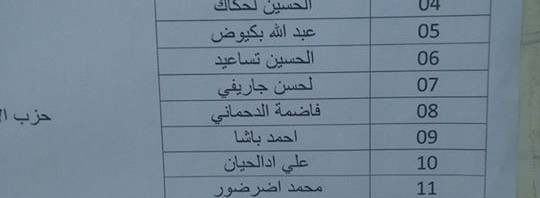 04 الحسين لحكاك
05 عبد الله بكيوض
06 الحسين تساعيد
07 لحسن جاريفي
08 فاضمة الدحماني
حزب
09 احمد باشا
10 علي ادالحيان
11 محمد اضرضور